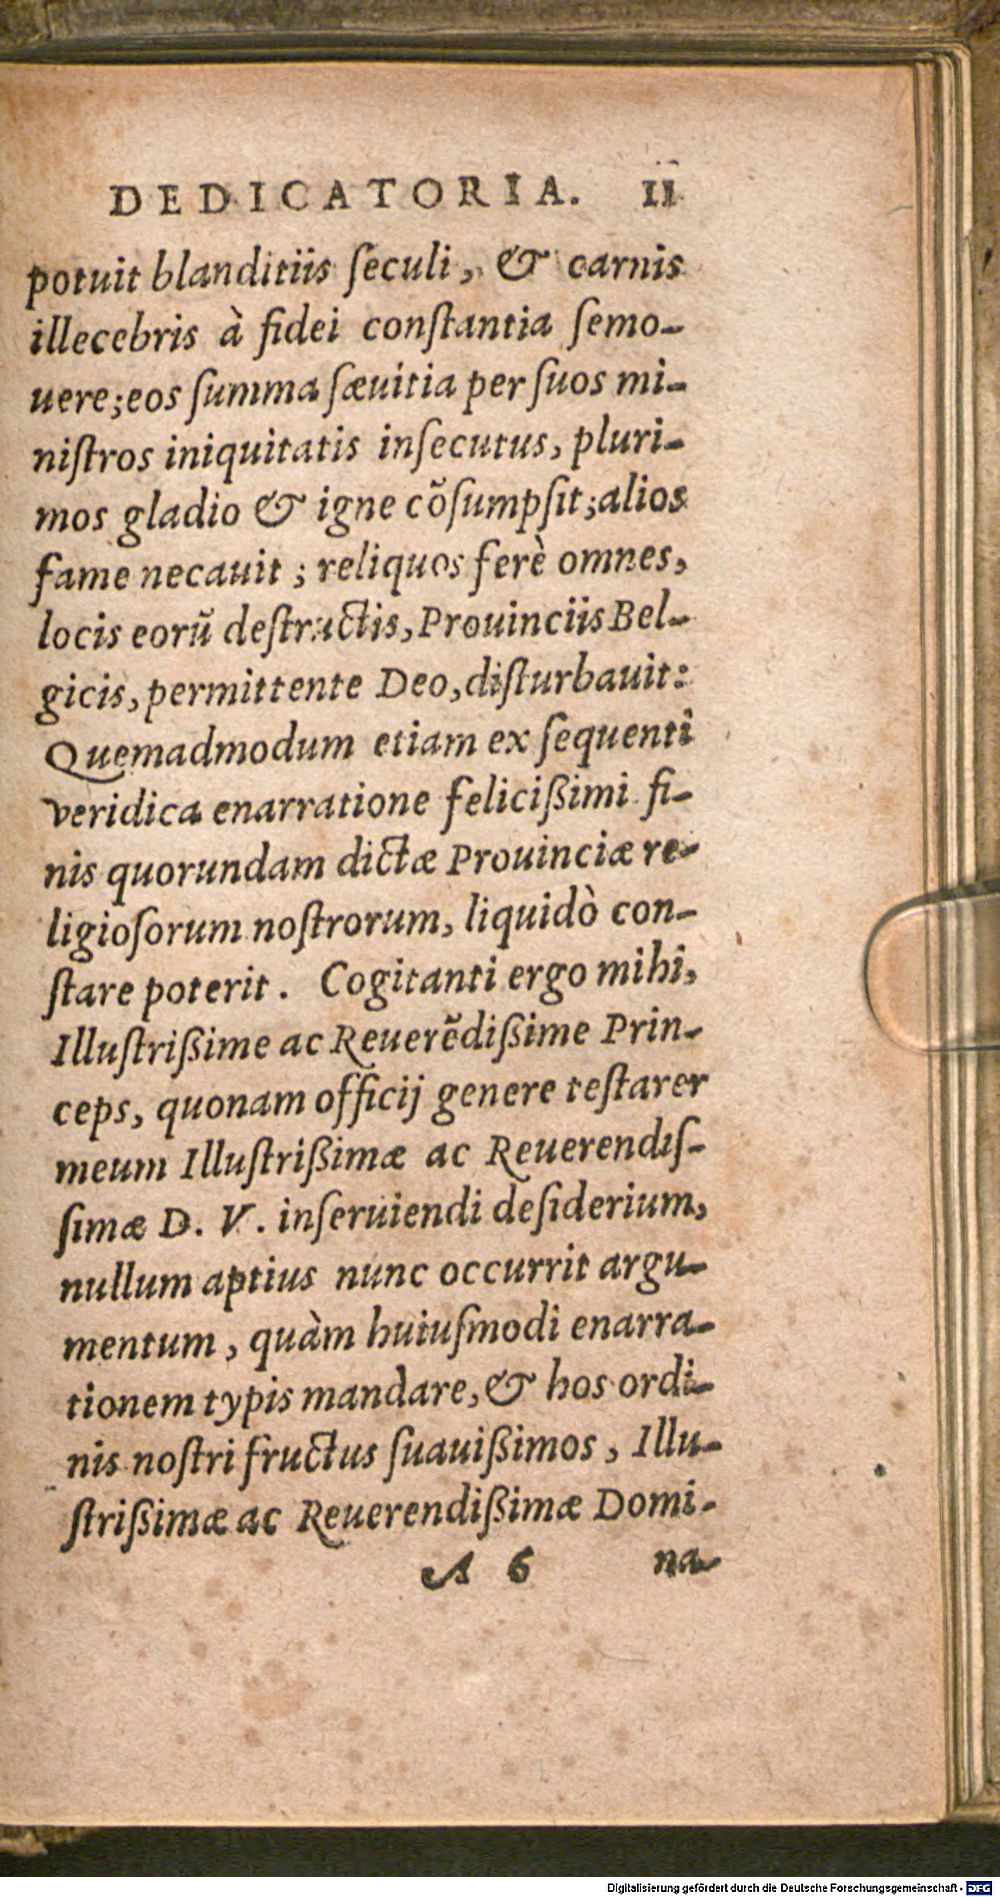 DEDICATORIA. 11
potuit blanditiis ſeculi, & carnis
illecebris à fidei conſtantia ſemo-
uere; eos ſumma ſæuitia per ſuos mi-
niſtros iniquitatis inſecutus, pluri-
mos gladio & igne cõſumpſit; alios
fame necauit; reliquos ferè omnes,
locis eorũ deſtructis, Prouinciis Bel-
gicis, permittente Deo, diſturbauit:
Quemadmodum etiam ex ſequenti
veridica enarratione feliciſſimi fi-
nis quorundam dictæ Prouinciæ re-
ligioſorum noſtrorum, liquidò con-
ſtare poterit. Cogitanti ergo mihi,
Illuſtrißime ac Reuerẽdißime Prin-
ceps, quonam officij genere teſtarer
meum Illuſtrißimæ ac Reuerendiſ-
ſimæ D. V. inſeruiendi deſiderium,
nullum aptius nunc occurrit argu-
mentum, quàm huiuſmodi enarra-
tionem typis mandare, & hos ordi-
nis noſtri fructus ſuauißimos, Illu-
ſtrißimæ ac Reuerendißimæ Domi-
A 6 na-
Digitalisierung gefördert durch die Deutsche Forschungsgemeinschaft - DFG